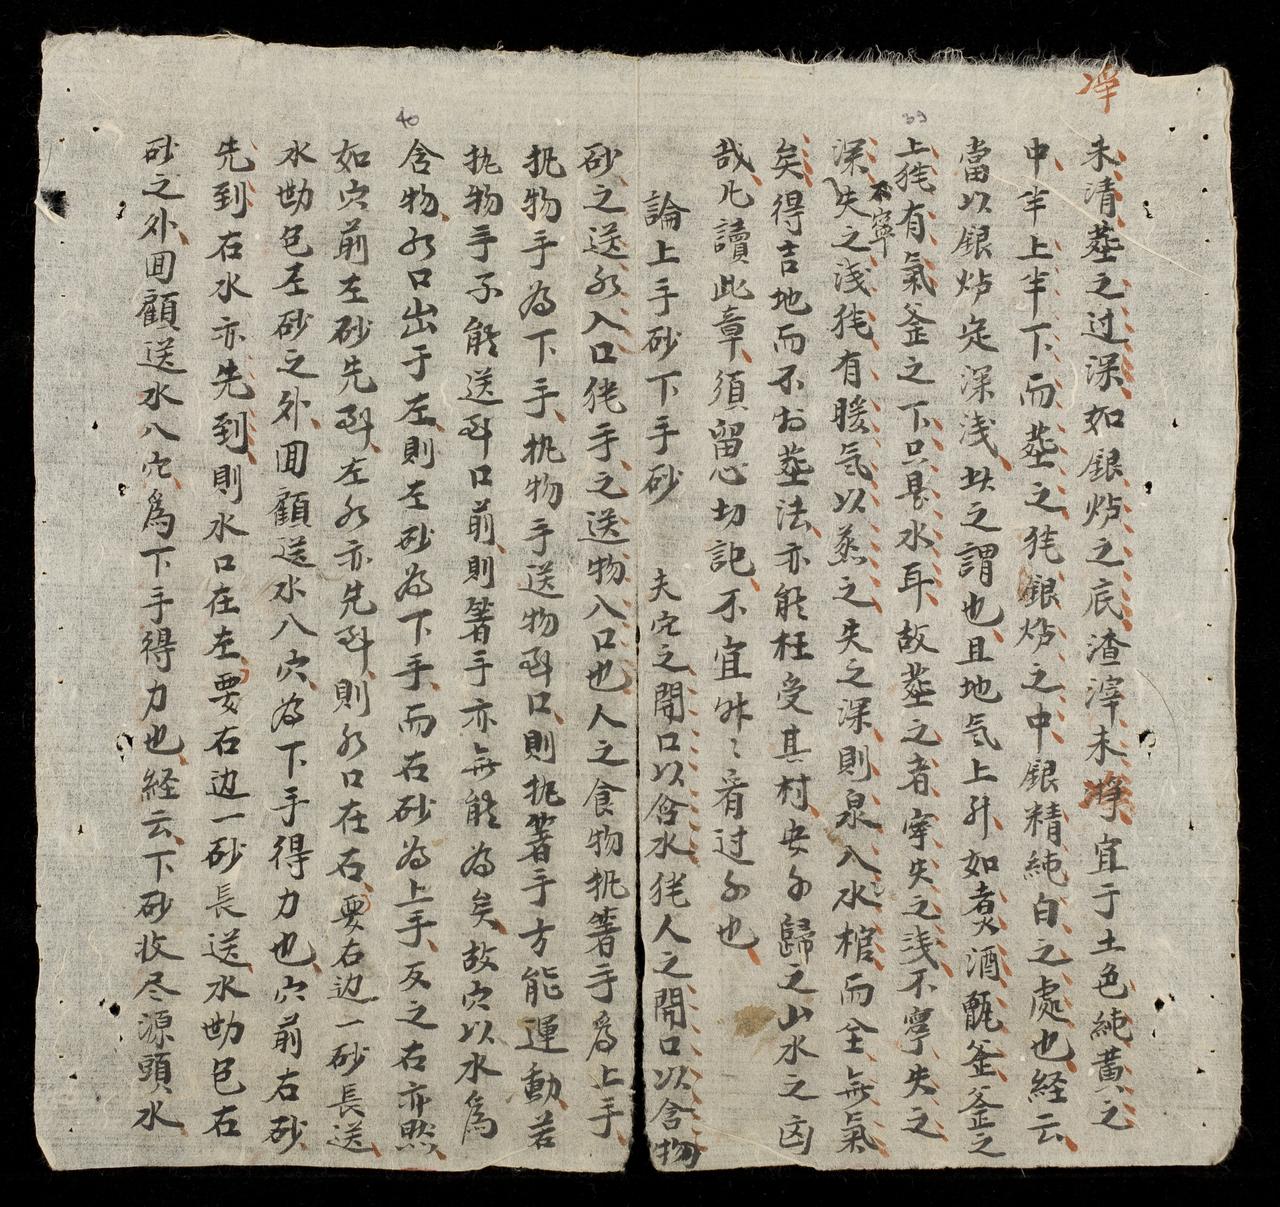 净
39
未清葬之过深如銀炉之底渣滓未净宜于土色純黄之
中半上半下而葬之㹠銀炉之中銀精純白之處也经云
當以銀炉定深浅此之謂也且地气上升如煮酒甑釜釜之
上㹠有氣釜之下只是水耳故葬之者寧失之浅不寧失之
不寧
深失之浅㹠有暖气以蒸之失之深則泉入水棺而全無氣
矣得吉地而不知葬法亦能枉受其村安知歸之山水之凶
哉凡讀此章須留心切記不宜艸〻看过知也
論上手砂下手砂 夫穴之開口以含水㹠人之開口以含物
40
砂之送水入口㹠手之送物入口也人之食物执箸手為上手
执物手為下手执物手送物到口則执箸手方能運動若
执物手不能送到口前則箸手亦無能為矣故穴以水為
含物水口出于左則左砂為下手而右砂為上手反之右亦然
如穴前左砂先到左水亦先到則水口在右要右边一砂長送
水勘包左砂之外囬顧送水入穴為下手得力也穴前右砂
先到右水亦先到則水口在左要右边一砂長送水勘包右
砂之外囬顧送水入穴為下手得力也経云下砂收尽源頭水